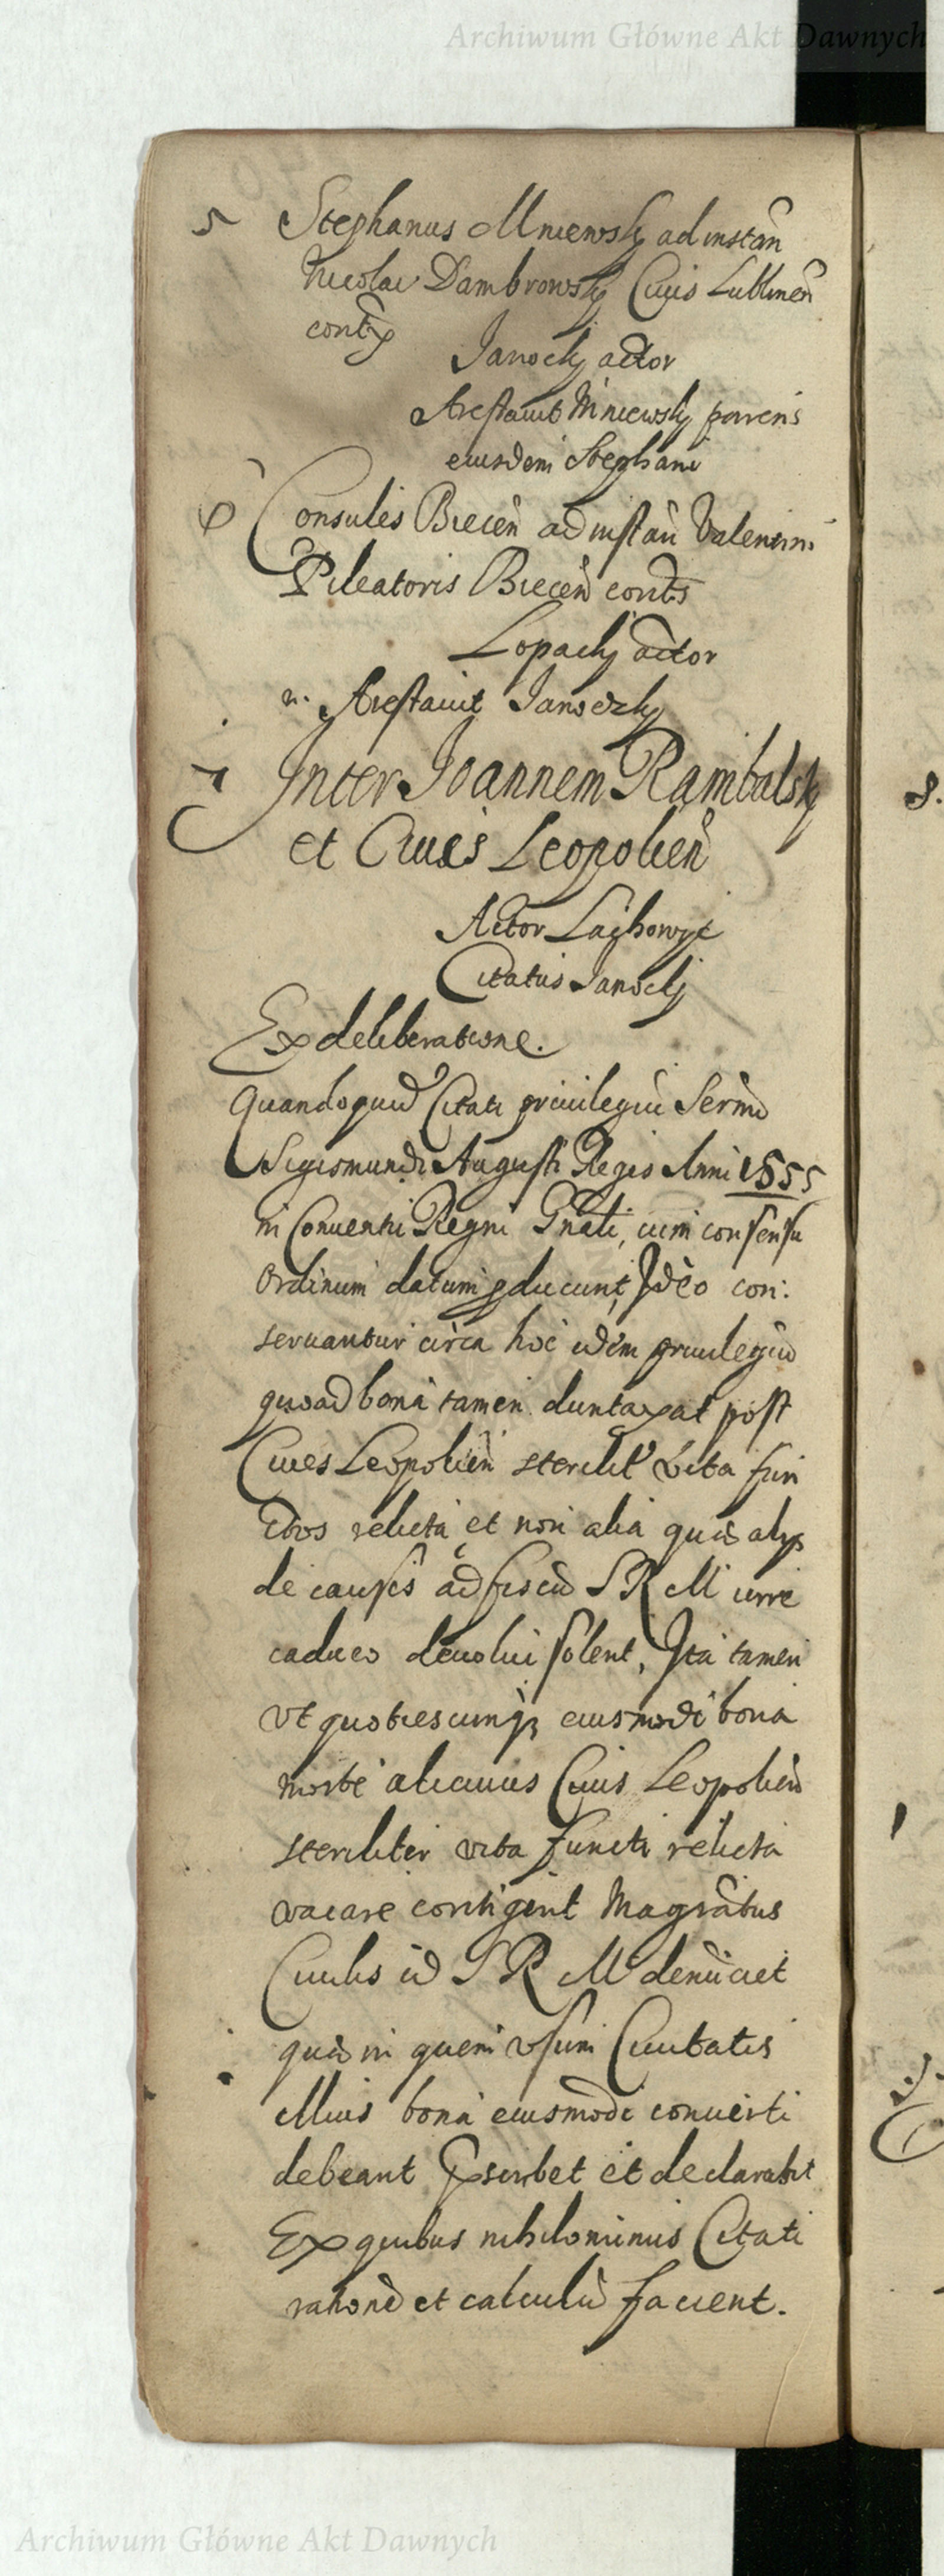 Archiwum Główne Akt Dawnych
5 Stephanus Mniewsky ad instan
Nicolai Dambrowsky Civis Lublinen
contra
Janocky actor
Arestavit Mniewsky parens
eiusdem Stephani
6 Consules Biecen ad instan Valentini
Pileatoris Biecen conts
Lopacky actor
n. Arestavit Janoczky
7 Inter Joannem Rambalsky
et Cives Leopolien
Actor
Citatus Janocky
Ex deliberatione.
Quandoquid Citati privilegiu Sermi
Sigismundi Augusti Regis Anni 1555
in Conventu Regni Gnali, cum consensu
Ordinum datum pducunt, Ideo con:
servantur circa hoc idem privilegiu
quoad bona tamen duntaxat post
Cives Leopolien sterilit vita fun
ctos relicta et non alia quae alys
de causis ad fiscu S R M iure
caduco devolui solent, Ita tamen
Vt quotiescunq eiusmodi bona
morte alicuius Civis Leopolien
steriliter vita functi relicta
vacare contigerit Magratus
Civilis id S R M denuciet
quae in quem usum Civitatis
illius bona eiusmodi converti
debeant pscribet et declarabit
Ex quibus nihilominus Citati
rationé et calculu facient.
8.
Archiwum Główne Akt Dawnych